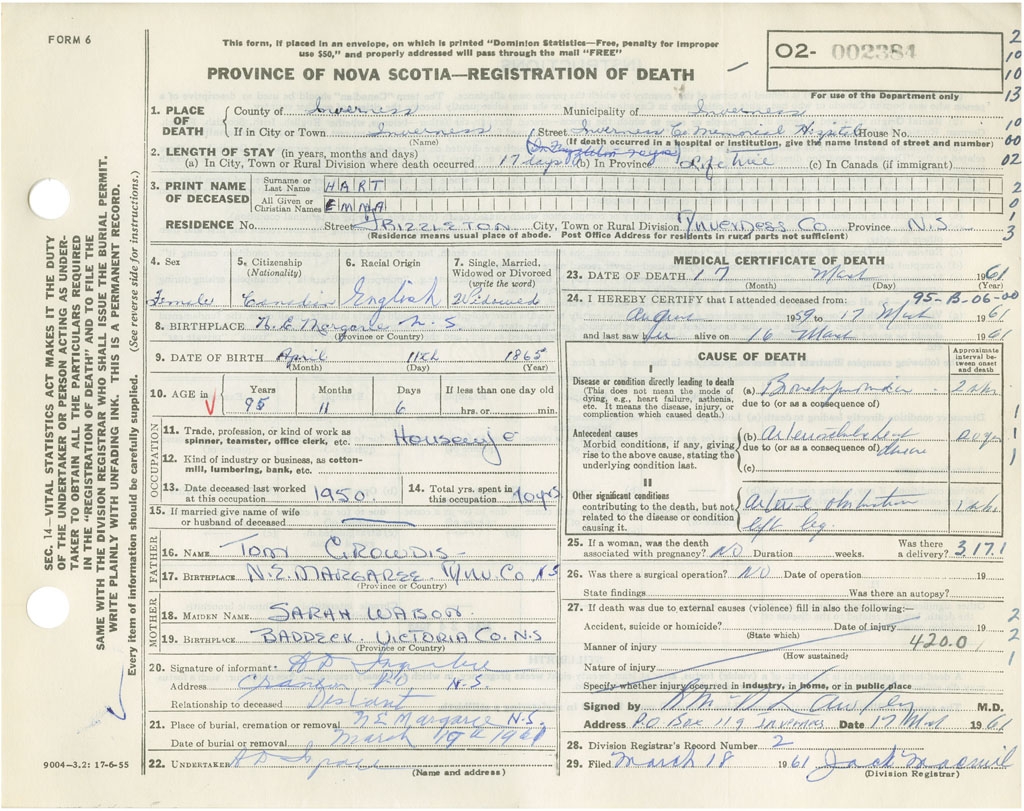 FORM 6
This form, if placed in an envelope, on which is printed "Dominion Statistics—Free, penalty for improper
use $50," and properly addressed will pass through the mail "FREE"
PROVINCE OF NOVA SCOTIA—REGISTRATION OF DEATH
02- 002384
For use of the Department only
2
10
10
13
10
00
02
2
0
1
3
1. PLACE OF DEATH
County of Inverness Municipality of Inverness
If in City or Town Inverness Street Inverness Co Memorial Hospital House No.
(Name) (If death occurred in a hospital or institution, give the name instead of street and number)
2. LENGTH OF STAY (in years, months and days)
(a) In City, Town or Rural Division where death occurred 17 days (b) In Province Life Time (c) In Canada (if immigrant)
3. PRINT NAME OF DECEASED
Surname or Last Name HART
All Given or Christian Names EMMA
RESIDENCE No. Street City, Town or Rural Division Inverness Co Province N.S
(Residence means usual place of abode. Post Office Address for residents in rural parts not sufficient)
4. Sex
Female
5. Citizenship
(Nationality)
Canadian
6. Racial Origin
English
7. Single, Married,
Widowed or Divorced
(write the word)
Widowed
8. BIRTHPLACE N.E. Margaree N.S
(Province or Country)
9. DATE OF BIRTH April 11th 1865
(Month) (Day) (Year)
10. AGE in
Years Months Days If less than one day old
95 11 6 hrs. or min.
OCCUPATION
11. Trade, profession, or kind of work as
spinner, teamster, office clerk, etc. Housewife
12. Kind of industry or business, as cotton-
mill, lumbering, bank, etc.
13. Date deceased last worked
at this occupation 1950
14. Total yrs. spent in
this occupation 70 yrs
15. If married give name of wife
or husband of deceased
FATHER
16. NAME TOM CROWDIS
17. BIRTHPLACE N.E. MARGAREE. INV. Co N.S
(Province or Country)
MOTHER
18. MAIDEN NAME SARAH
19. BIRTHPLACE BADDECK. VICTORIA Co. N.S
(Province or Country)
20. Signature of informant
Address N.S.
Relationship to deceased Distant
21. Place of burial, cremation or removal N.E. Margaree N.S.
Date of burial or removal March 19th 1961
22. UNDERTAKER
(Name and address)
MEDICAL CERTIFICATE OF DEATH
23. DATE OF DEATH 17 March 1961
(Month) (Day) (Year)
95-B-06-00
24. I HEREBY CERTIFY that I attended deceased from:
August 1959 to 17 March 1961
and last saw her alive on 16 March 1961
CAUSE OF DEATH
Approximate
interval be-
tween onset
and death
I
Disease or condition directly leading to death
(This does not mean the mode of
dying, e.g., heart failure, asthenia,
etc. It means the disease, injury, or
complication which caused death.)
(a) Bronchopneumonia
due to (or as a consequence of)
Antecedent causes
Morbid conditions, if any, giving
rise to the above cause, stating the
underlying condition last.
(b) arteriosclerotic heart
due to (or as a consequence of) disease
(c)
II
Other significant conditions
contributing to the death, but not
related to the disease or condition
causing it.
arterial obstruction
left leg.
1
1
1
25. If a woman, was the death
associated with pregnancy? NO Duration weeks. Was there
a delivery? 317.1
26. Was there a surgical operation? NO Date of operation 19
State findings Was there an autopsy?
27. If death was due to external causes (violence) fill in also the following:—
Accident, suicide or homicide? Date of injury 19
(State which)
Manner of injury 420.0
(How sustained)
Nature of injury
Specify whether injury occurred in industry, in home, or in public place
2
2
1
Signed by M.D.
Address P.O. Box 119 Inverness Date 17 March 1961
28. Division Registrar's Record Number 2
29. Filed March 18 1961 Jack
(Division Registrar)
SEC. 14—VITAL STATISTICS ACT MAKES IT THE DUTY
OF THE UNDERTAKER OR PERSON ACTING AS UNDER-
TAKER TO OBTAIN ALL THE PARTICULARS REQUIRED
IN THE "REGISTRATION OF DEATH" AND TO FILE THE
SAME WITH THE DIVISION REGISTRAR WHO SHALL ISSUE THE BURIAL PERMIT.
WRITE PLAINLY WITH UNFADING INK. THIS IS A PERMANENT RECORD.
Every item of information should be carefully supplied. (See reverse side for instructions.)
9004-3.2: 17-6-55